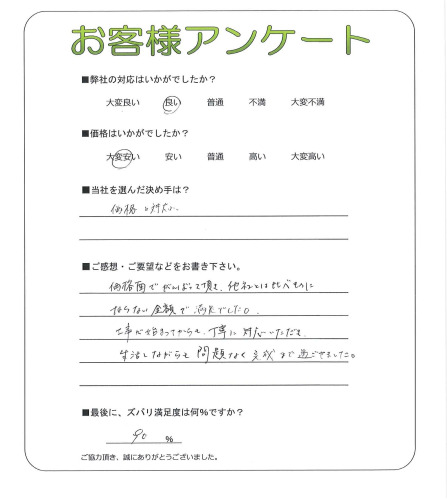 お客様アンケート
■弊社の対応はいかがでしたか？
大変良い 良い 普通 不満 大変不満
■価格はいかがでしたか？
大変安い 安い 普通 高い 大変高い
■当社を選んだ決め手は？
価格と対応
■ご感想・ご要望などをお書き下さい。
価格面でがんばって頂き、他社とは比べものに
ならない金額で満足でした。
工事が始まってからも、丁寧に対応いただき
生活しながらも問題なく完成まで過ごせました。
■最後に、ズバリ満足度は何％ですか？
90 ％
ご協力頂き、誠にありがとうございました。